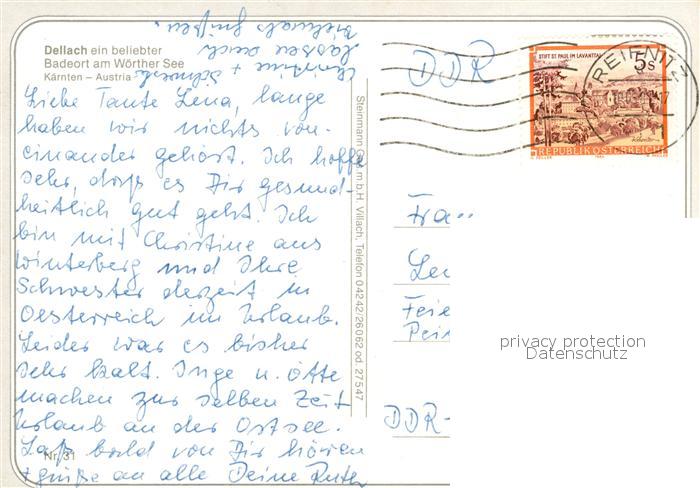 Dellach ein beliebter
Badeort am Wörther See
Kärnten – Austria
Liebe Tante Lena, lange
haben wir nichts von-
einander gehört. Ich hoffe
sehr, daß es Dir gesund-
heitlich gut geht. Ich
bin mit Christine aus
Winterberg und Ihre
Schwester derzeit in
Oesterreich im Urlaub.
Leider war es bisher
sehr kalt. Inge u. Otto
machen zur selben Zeit
Urlaub an der Ostsee.
Laß bald von Dir hören
+ grüße an alle Deine Ruth
Christine + Schwester
lassen auch
vielmals grüßen.
Nr. 31
Steinmann Ges.m.b.H. Villach, Telefon 04242/26062 od. 27547
DDR
STIFT ST. PAUL IM LAVANTTAL
5s
REPUBLIK ÖSTERREICH
REIFNITZ
Frau
Le
Feie
Pei
DDR-
privacy protection
Datenschutz